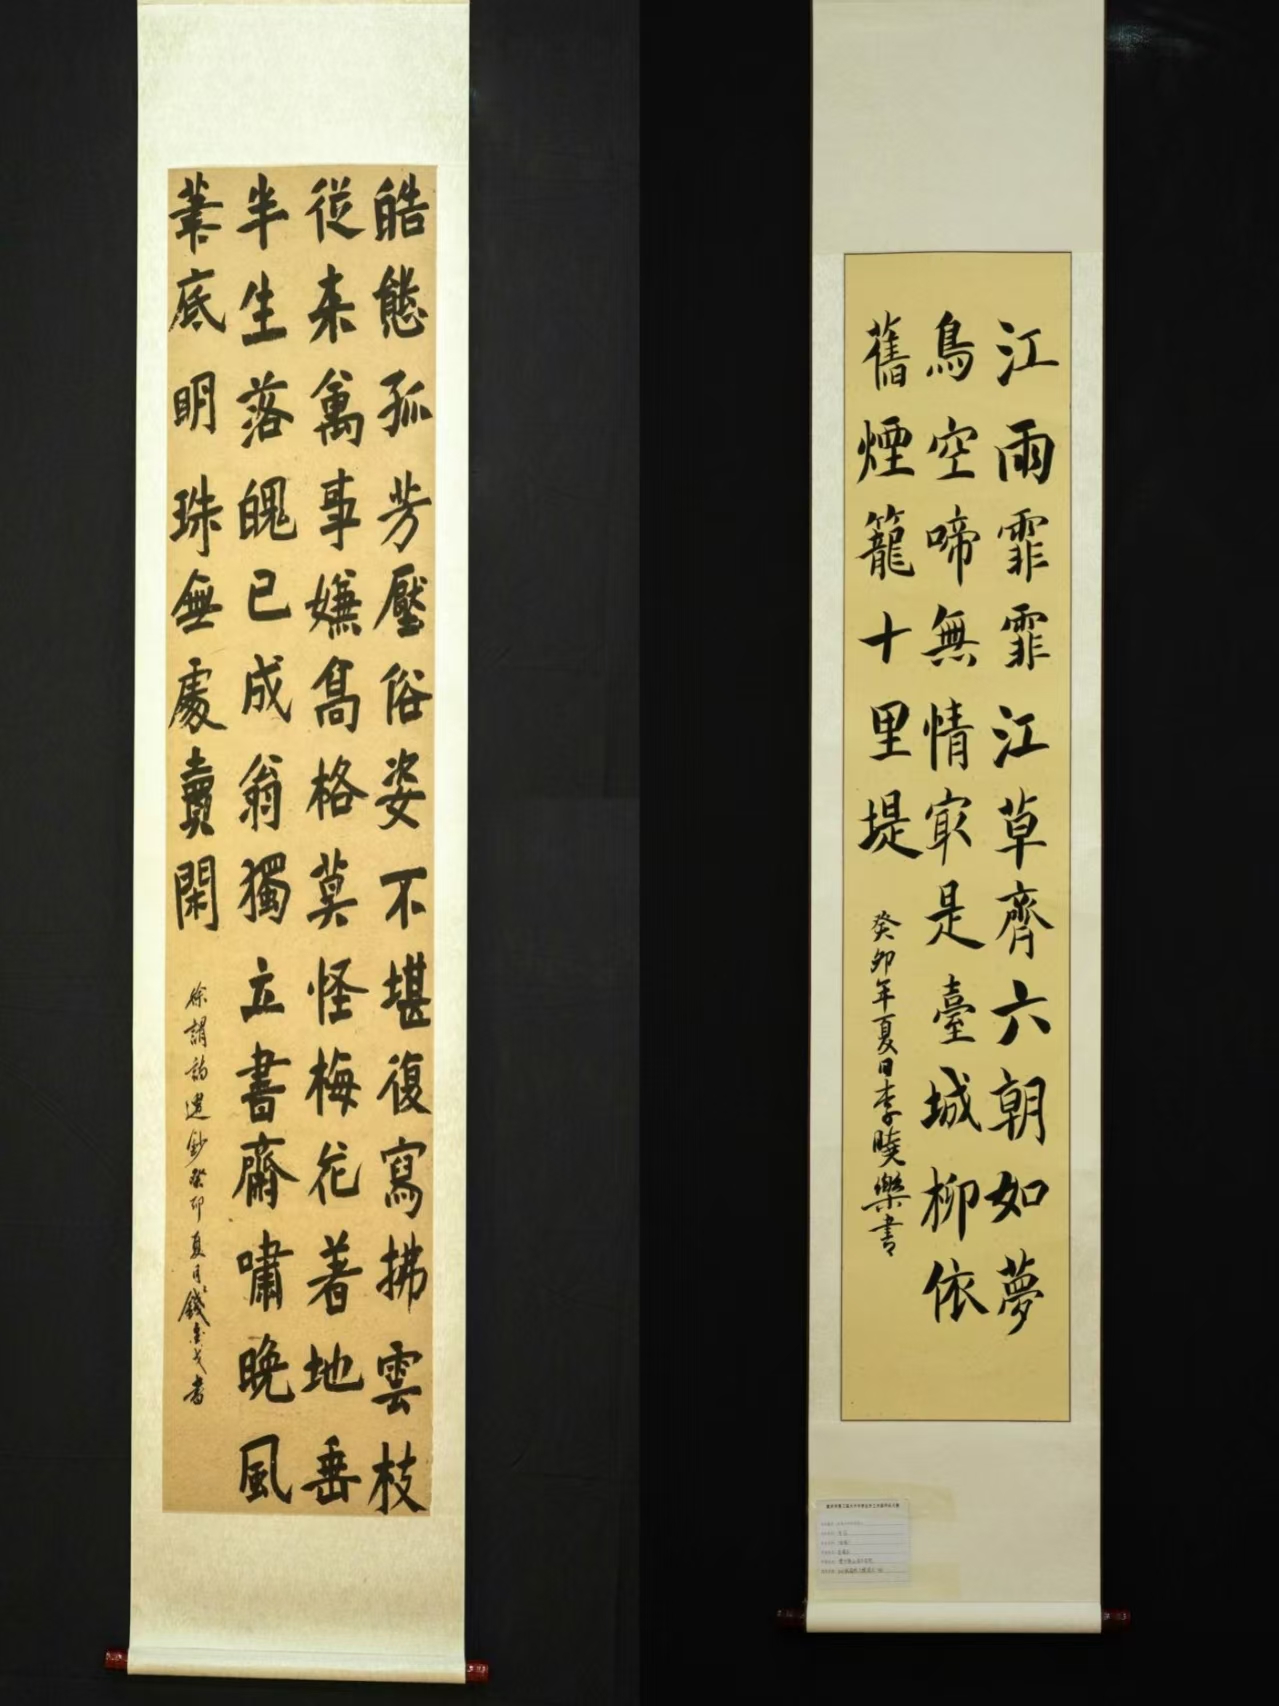 皓態孤芳壓俗姿不堪復寫拂雲枝
從来萬事嫌髙格莫怪梅花着地垂
半生落魄已成翁獨立書齋嘯晚風
筆底明珠無處賣閑
徐謂 鈔癸卯夏月錢 書
江雨霏霏江草齊六朝如夢
鳥空啼無情冣是臺城柳依
舊煙籠十里堤
癸卯年夏日李曉樂書